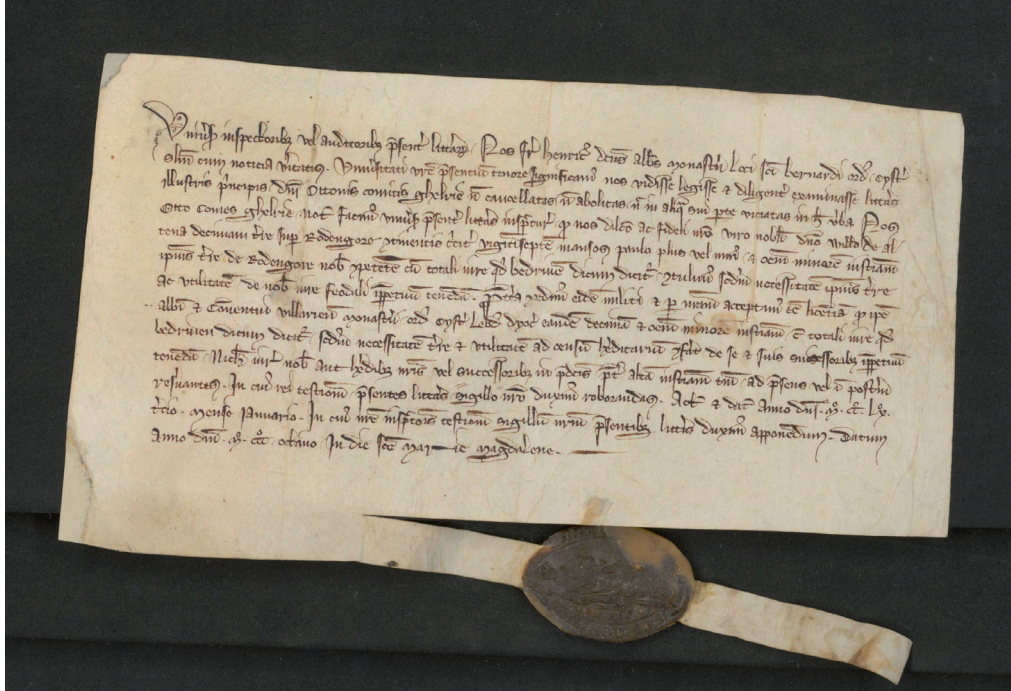 Uniuersis inspectoribus vel auditoribus presentium litterarum. Nos frater Henricus dictus abbas monasterii Loci sancti bernardi ordinis Cysterciensis
Salutem cum noticia veritatis. Uniuersitati vestre presentium tenore significamus nos vidisse legisse & diligenter examinasse litteras
illustris principis domini Ottonis comitis Ghelrie non cancellatas non abolitas nec in aliqua sui parte viciatas in hec verba Nos
Otto Comes Ghelrie. Notum facimus vniuersis presentes litteras inspecturis quod nos dilecto ac fideli nostro viro nobili domino Willelmo de al
tena decimam terre super Rodengore. continentis circiter viginti septem mansos paulo plus vel minus. & omnem minorem iusticiam
ipsius terre de Rodengore nobis competentem cum totali iure quod bedriuen dicitur. secundum necessitatem ipsius terre
ac vtilitatem de nobis iure feodali imperpetuum tenendam. eidem militi & per nostram acceptamus licentia quod ipse
abbati & Conuentui villariensis Monasterii. ordinis Cysterciensis Leodiensis dyocesis eandem decimam & omnem minorem iusticiam. cum totali iure quod
bedriuen dicitur. secundum necessitatem terre & vtilitatem ad censum hereditarium conferat de se & suis successoribus imperpetuum
tenendam. Nichil iuris nobis aut heredibus nostris vel successoribus in predictis preter altam iusticiam tantum. ad presens vel in posterum
reseruantes. In cuius rei testimonium presentes litteras sigillo nostro duximus roborandas. Actum & datum Anno domini. M. CC. Lx.
tercio. Mense Januario. In cuius nostre inspectionis testimonium sigillum nostrum presentibus litteris duximus apponendum. Datum
Anno domini. M. CCC. octauo. In die sancte Marie Magdalene.